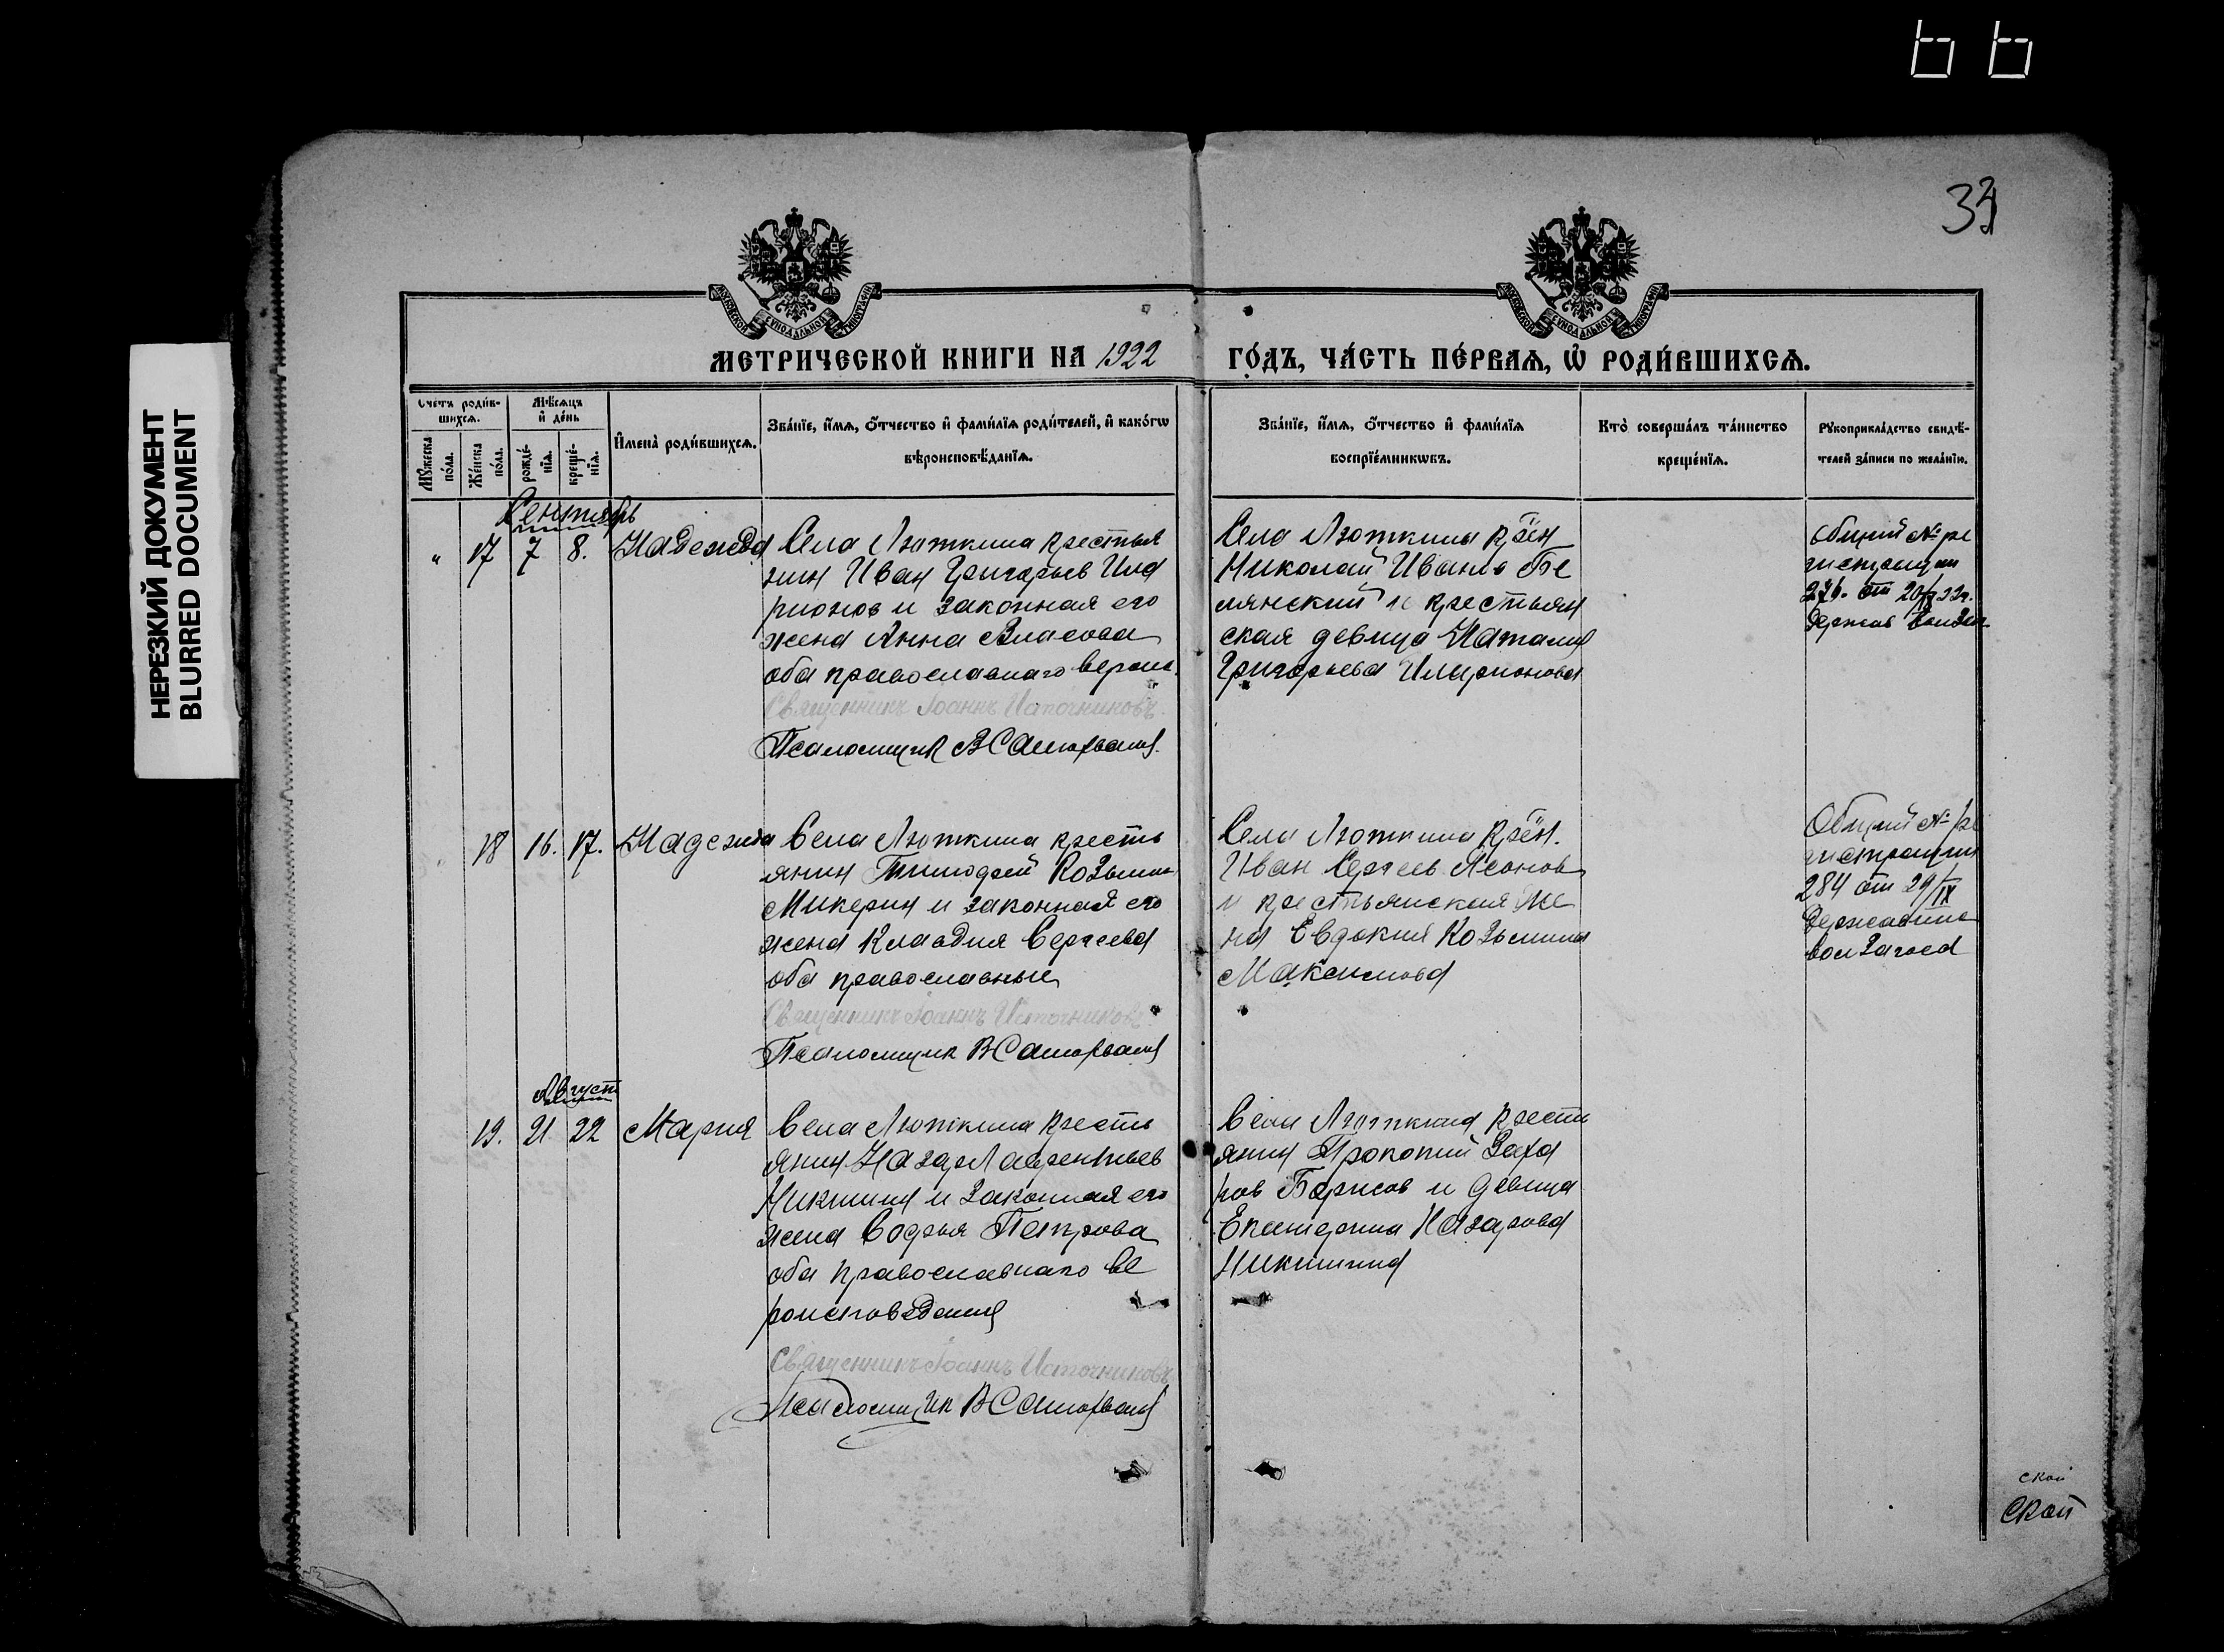 66
33
НЕРЕЗКИЙ ДОКУМЕНТ
BLURRED DOCUMENT
МОСКОВСКОЙ СѴНОДАЛЬНОЙ ТИПОГРАФІИ
МОСКОВСКОЙ СѴНОДАЛЬНОЙ ТИПОГРАФІИ
МЕТРИЧЕСКОЙ КНИГИ НА 1922 ГО́ДЪ, ЧА́СТЬ ПЕ́РВАѦ, Ѡ РОДИ́ВШИХСѦ.
Счетъ роди́в-
шихсѧ.
Мꙋжеска
по́ла.
Же́нска
по́ла.
Мѣ́сѧцъ
и де́нь
рожде́-
нїѧ.
креще́-
нїѧ.
Имена̀ роди́вшихсѧ.
Зва́нїе, и́мѧ, о́тчество и фами́лїѧ роди́телей, и како́гѡ
вѣроисповѣ́данїѧ.
Зва́нїе, и́мѧ, о́тчество и фами́лїѧ
воспрїе́мникѡвъ.
Кто̀ соверша́лъ та́инство
креще́нїѧ.
Рꙋкоприкла́дство свидѣ́-
телей за́писи по жела́нїю.
Сентябрь
" 17 7 8. Надежда
Села Люткина крестья
нин Иван Григорьев Ила
рионов и законная его
жена Анна Власова
оба православнаго вероис.
Священникъ Іоаннъ Источниковъ.
Псаломщик В
Села Люткина крён
Николай Иванов Бе
лянский и крестьян
ская девица Наталия
Григорьева Иларионова
Общий № ре
гистрации
276. от 20/IX 22г.
Держав
18 16. 17. Надежда
Села Люткина кресть
янин Тимофей Козьмин
Микерин и законная его
жена Клавдия Сергеева
оба православные
Священникъ Іоаннъ Источниковъ
Псаломщик В
Села Люткина крён.
Иван Сергеев Леонов
и крестьянская же
на Евдокия Козьмина
Максимова
Общий № ре
гистрации
284 от 29/IX
Август
19. 21 22 Мария
Села Люткина кресть
янин Назар Лаврентьев
Никишин и законная его
жена Софья Петрова
оба православнаго ве
роисповедания
Священникъ Іоаннъ Источниковъ
Псаломщик В
Села Люткина кресть
янин Прокопий Заха
ров Борисов и девица
Екатерина Назарова
Никишина
ской
ской